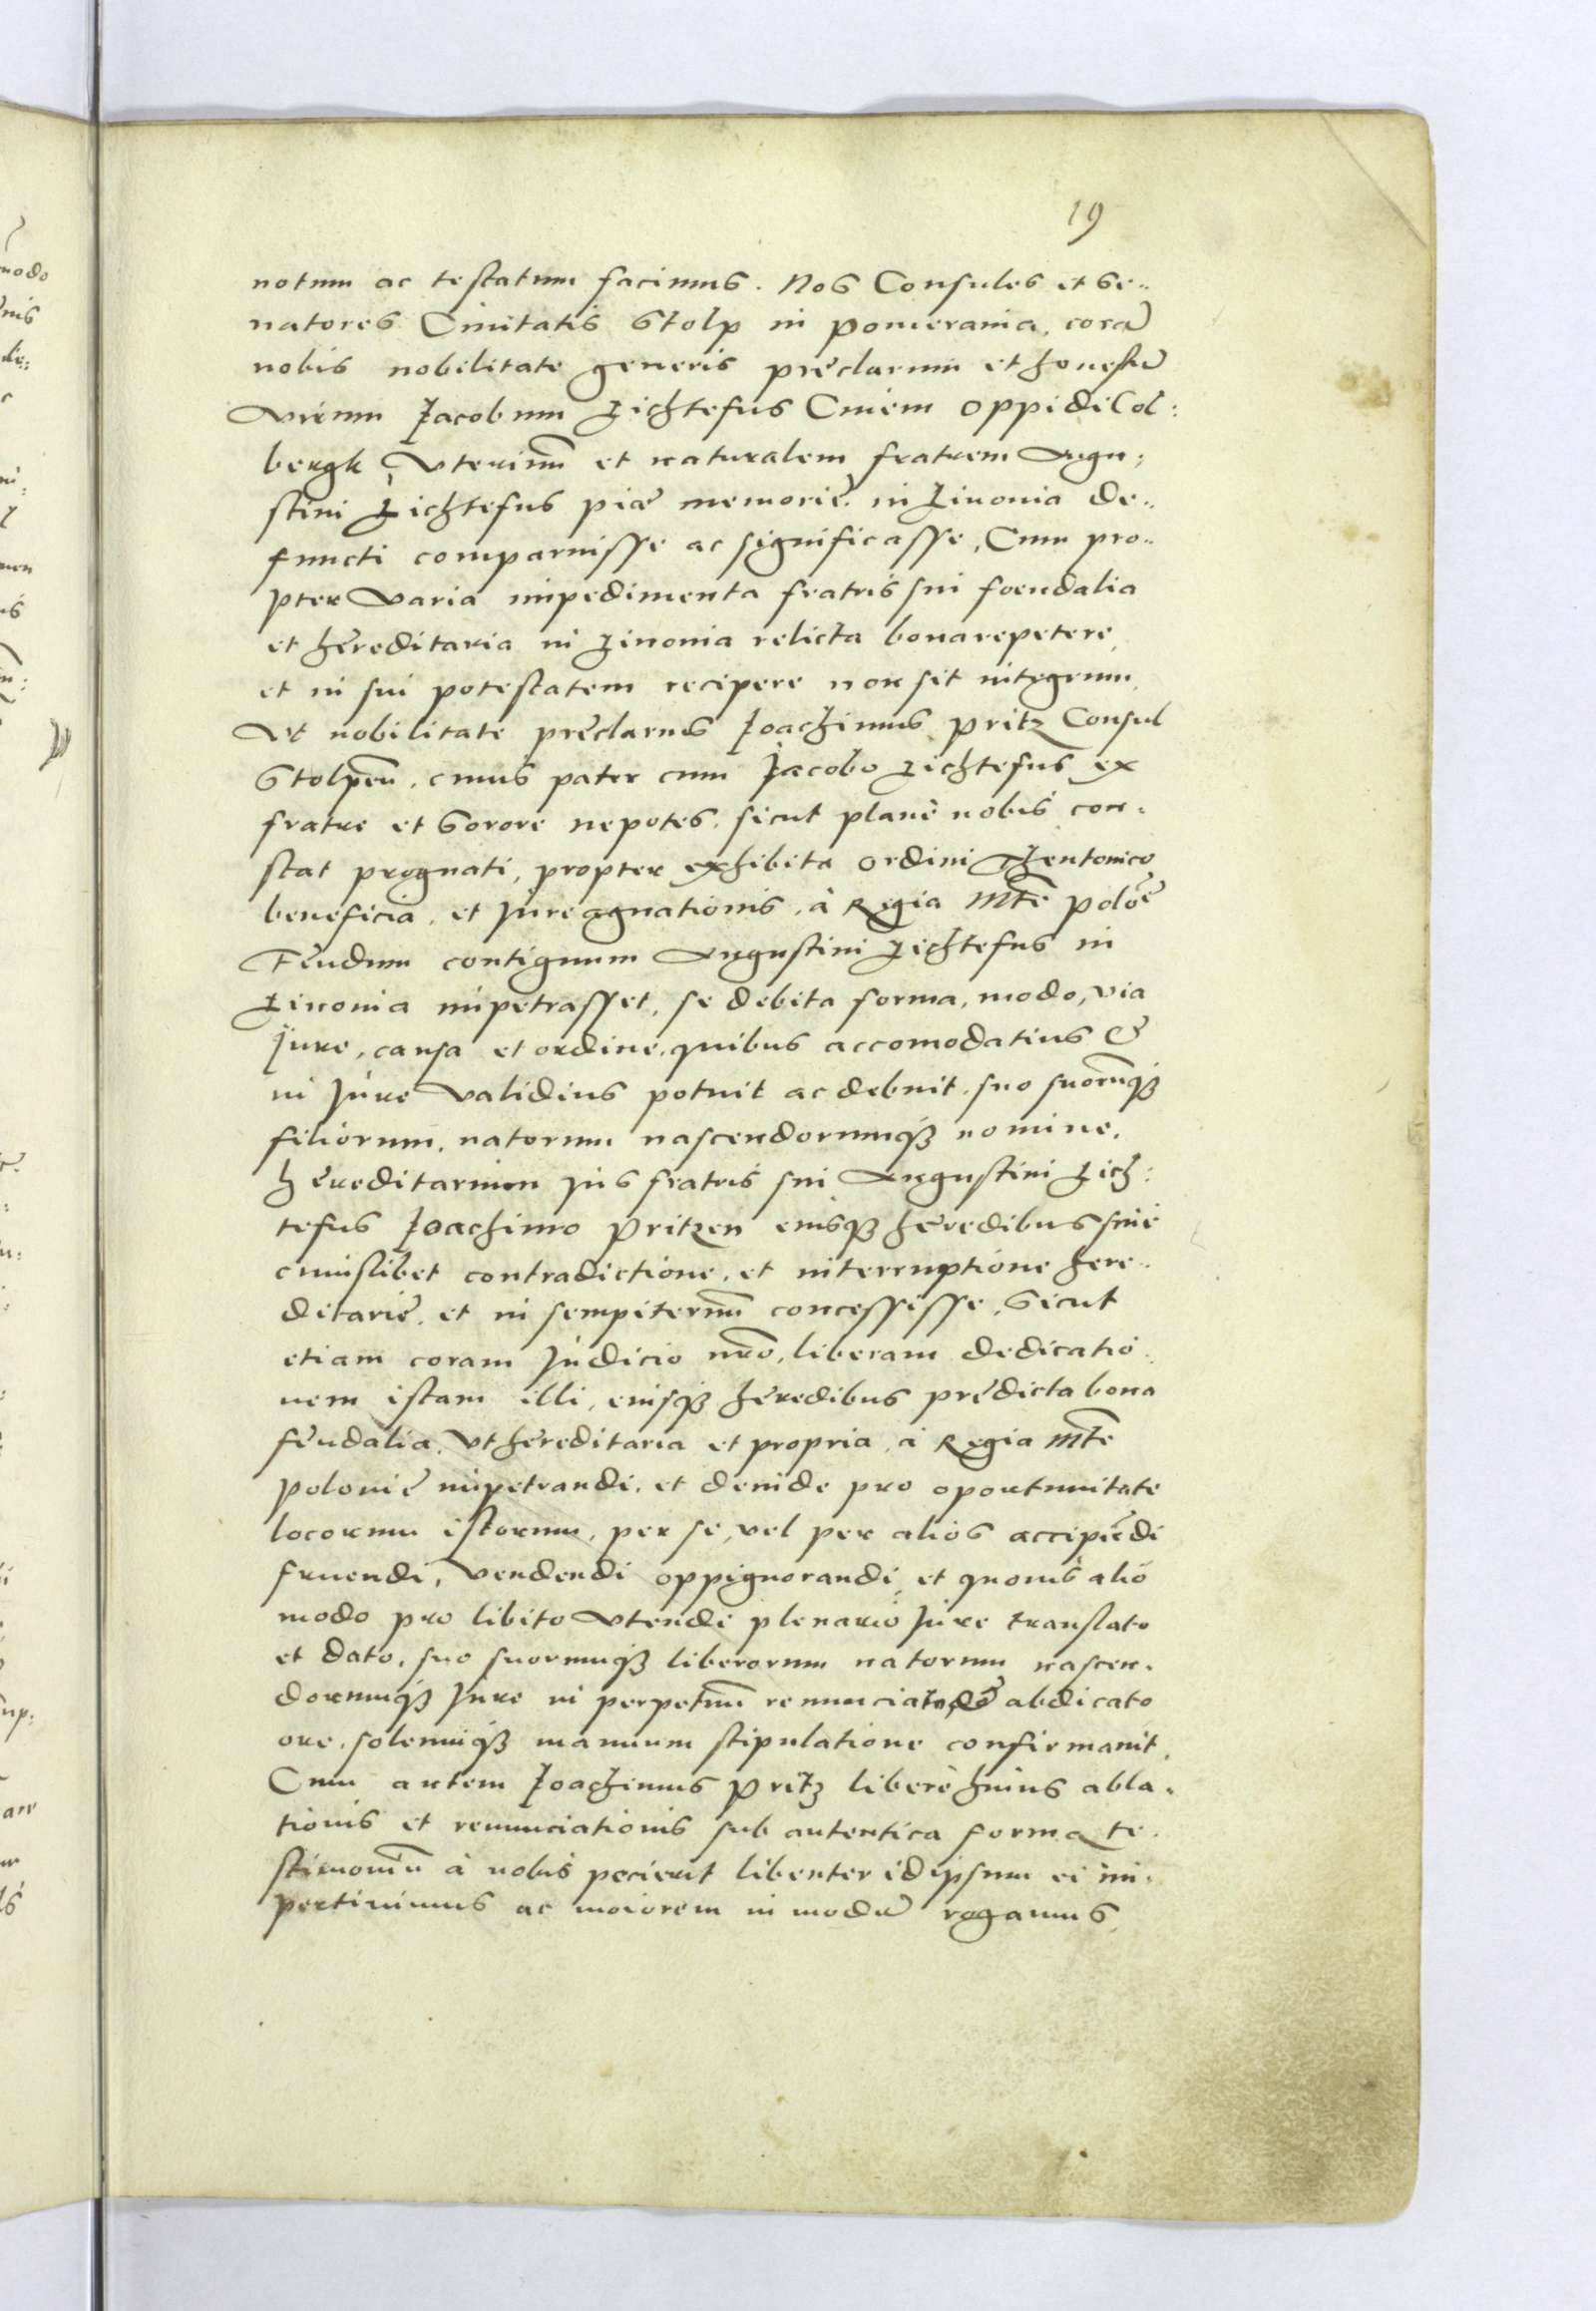 19
notum ac testatum facimus. Nos Consules et Se-
natores Ciuitatis Stolp in Pomerania, corã
nobis nobilitate generis preclarum et honestũ
Virum Jacobum Lichtefus Ciuem oppidi Col:
bergk, Vterinũ et naturalem fratrem Augu:
stini Lichtefus piæ memorie, in Liuonia de-
functi comparuisse ac significasse, Cum pro-
pter Varia impedimenta fratris sui foeudalia
et hereditaria in Liuonia relicta bona repetere,
et in sui potestatem recipere non sit integrum,
Vt nobilitate preclarus Joachimus Pritz Consul
Stolpeñ, cuius pater cum Jacobo Lichtefus ex
fratre et Sorore nepotes, sicut planè nobis con-
stat prognati, propter exhibita ordini Theutonico
beneficia, et Jure agnationis, à Regia Mte Poloẽ
Feudum contiguum Augustini Lichtefus in
Liuonia impetrasset, se debita forma, modo, via
Jure, causa et ordine, quibus accomodatius &
in Jure Validius potuit ac debuit, suo suorũq3
filiorum, natorum nascendorumq3 nomine,
hereditarium Jus fratris sui Augustini Lich:
tefus Joachimo Pritzen eiusq3 heredibus sine
cuiuslibet contradictione, et interruptione here-
ditarie, et in sempiternũ concessisse, Sicut
etiam coram Judicio nr̃o, liberam dedicatio-
nem istam illi, eiusq3 heredibus predicta bona
feudalia, Vt hereditaria et propria, à Regia Mte
Polonie impetrandi, et deinde pro oportunitate
locorum istorum, per se, vel per alios accipiẽdi
fruendi, Vendendi oppignorandi, et quouis alio
modo pro libito Vtendi plenario Jure translato
et dato, suo suorumq3 liberorum natorum nascen-
dorumq3 Jure in perpetuũ renunciato, & abdicato
ore, solenniq3 manuum stipulatione confirmauit,
Cum autem Joachimus Pritz liberè huius abla-
tionis et renunciationis sub autentica forma te-
stimoniũ à nobis pecierit libenter id ipsum ei im-
pertiuimus ac maiorem in modũ rogamus,